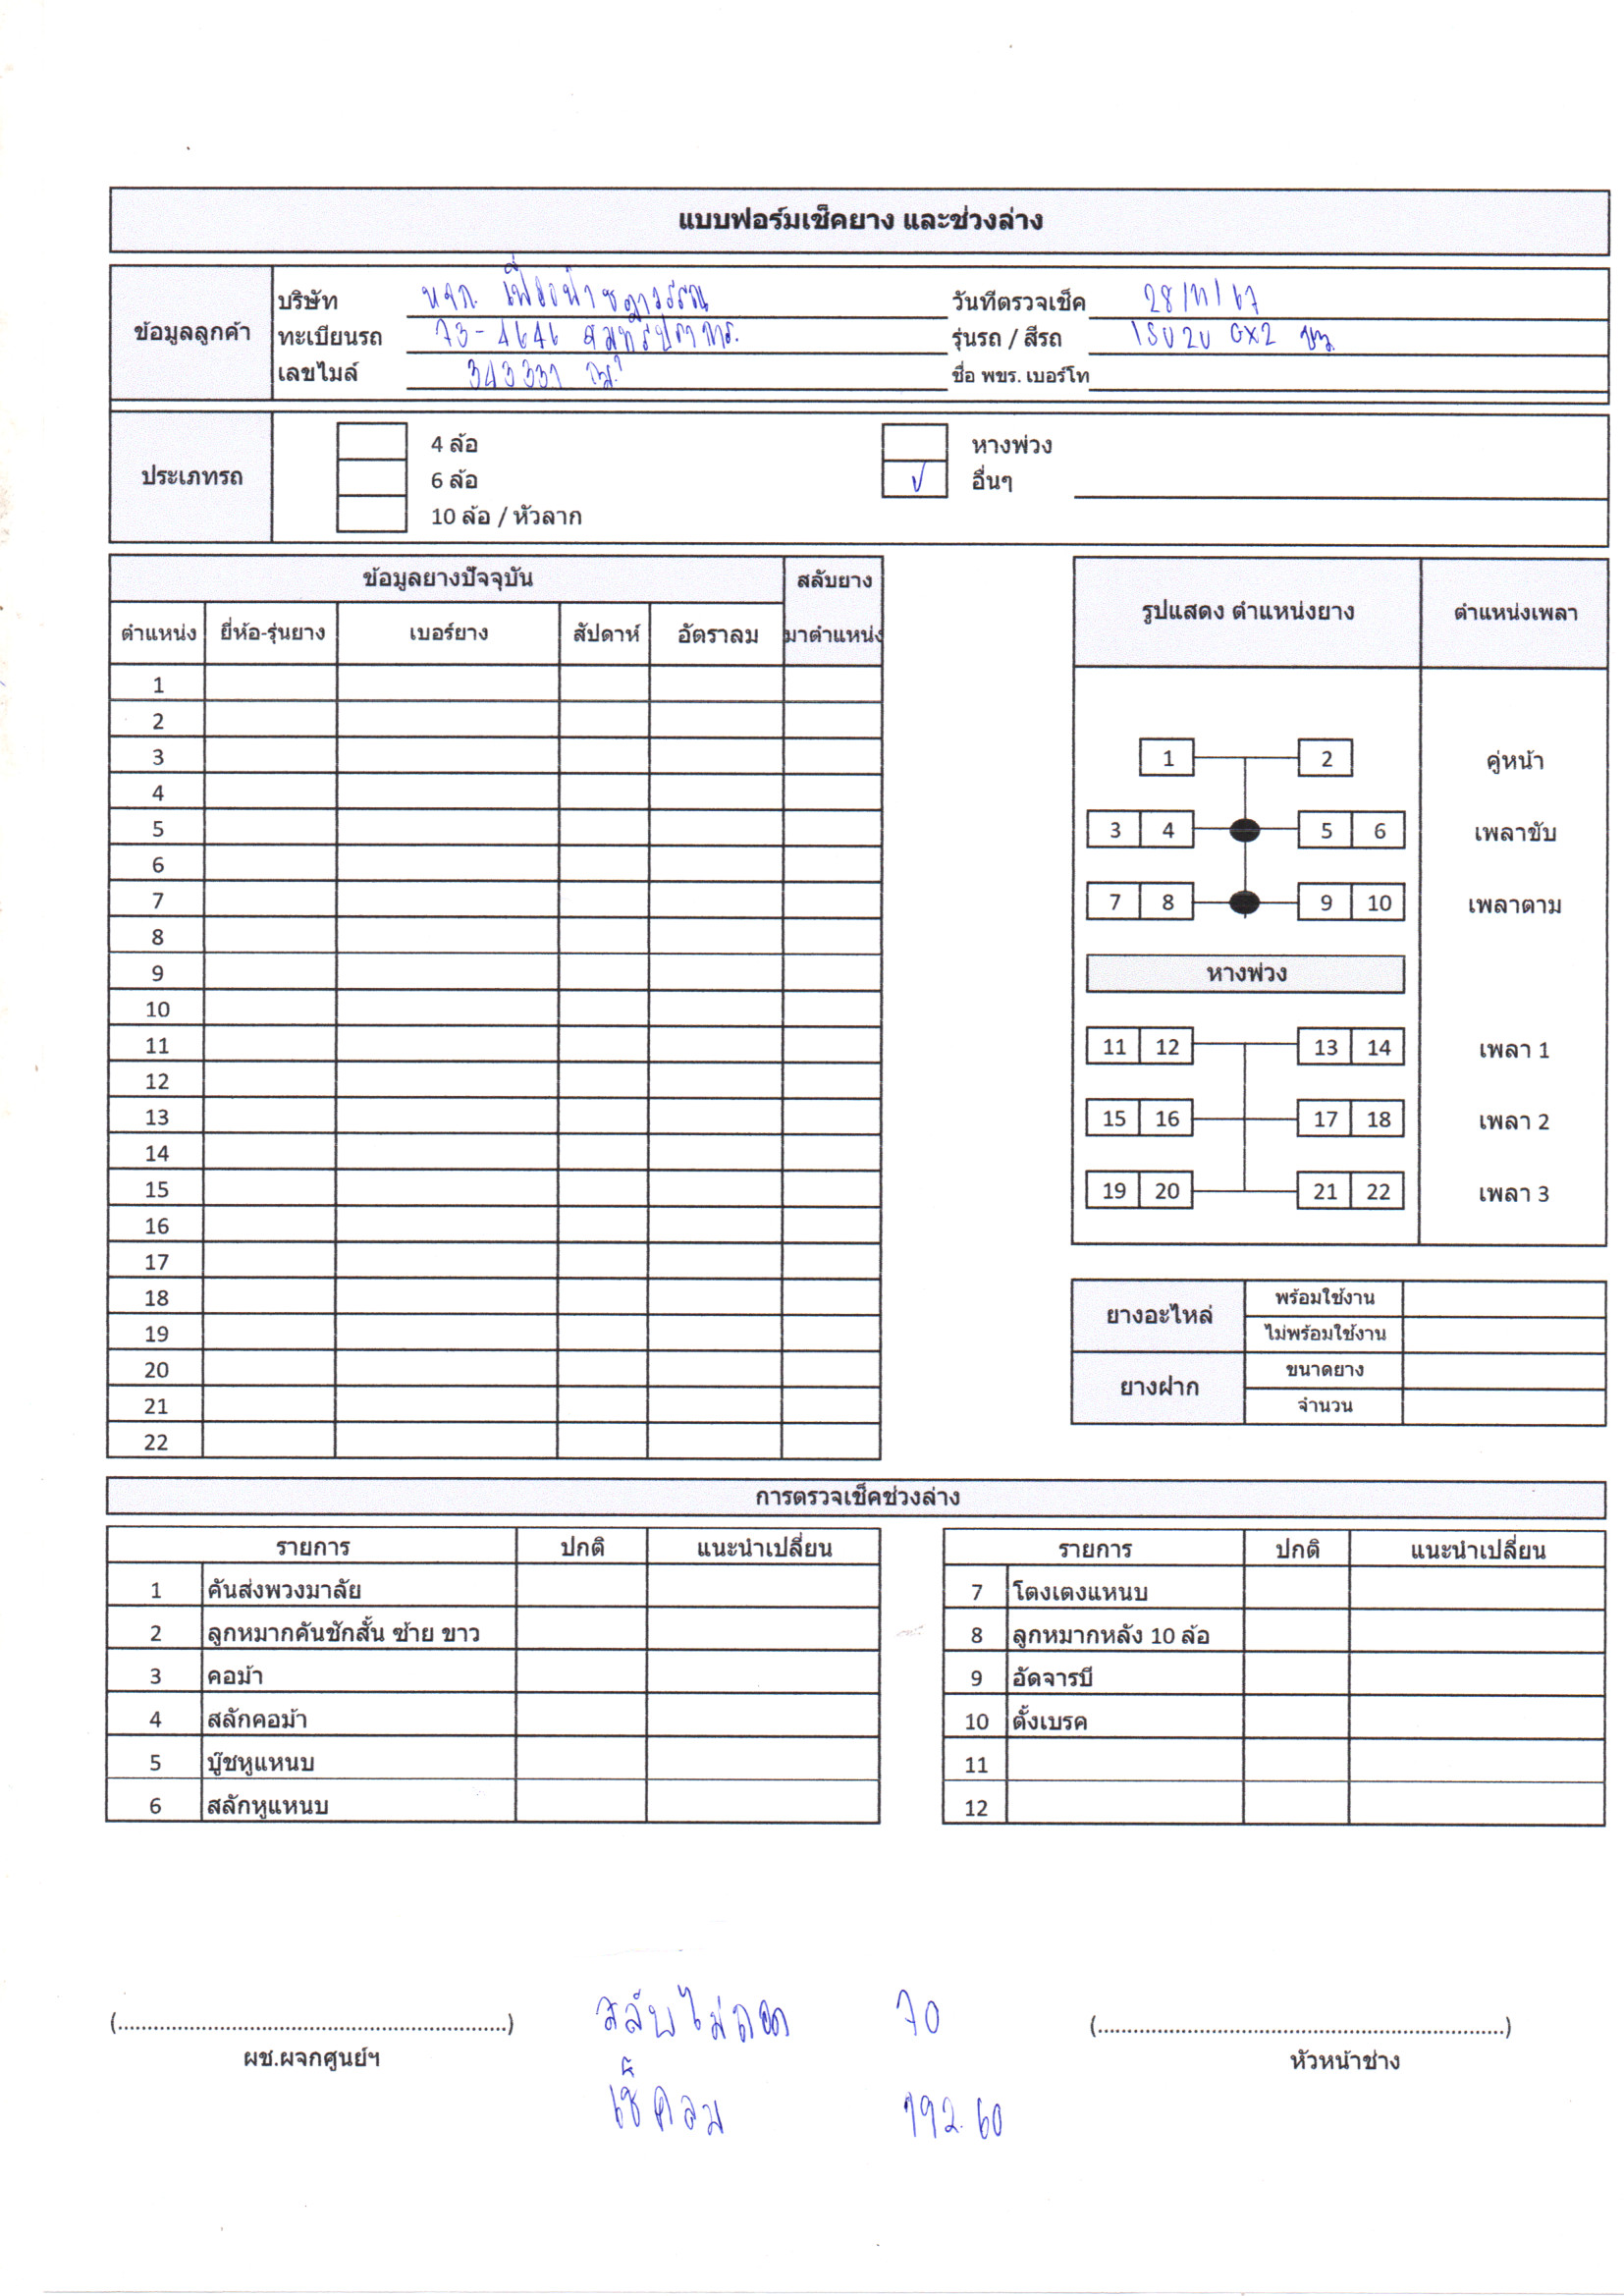 แบบฟอร์มเช็คยาง และช่วงล่าง
ข้อมูลลูกค้า
บริษัท หจก. เฟื่องฟ้าชฎาวรรณ
วันที่ตรวจเช็ค 28/11/67
ทะเบียนรถ 73-4646 สมุทรปราการ.
รุ่นรถ / สีรถ ISUZU GX2
เลขไมล์ 343337
ชื่อ พขร. เบอร์โท
ประเภทรถ
4 ล้อ
หางพ่วง
6 ล้อ
อื่นๆ
10 ล้อ / หัวลาก
ข้อมูลยางปัจจุบัน สลับยาง
ตำแหน่ง ยี่ห้อ-รุ่นยาง เบอร์ยาง สัปดาห์ อัตราลม มาตำแหน่ง
1
2
3
4
5
6
7
8
9
10
11
12
13
14
15
16
17
18
19
20
21
22
รูปแสดง ตำแหน่งยาง ตำแหน่งเพลา
1 2 คู่หน้า
3 4 5 6 เพลาขับ
7 8 9 10 เพลาตาม
หางพ่วง
11 12 13 14 เพลา 1
15 16 17 18 เพลา 2
19 20 21 22 เพลา 3
ยางอะไหล่ พร้อมใช้งาน
ไม่พร้อมใช้งาน
ยางฝาก ขนาดยาง
จำนวน
การตรวจเช็คช่วงล่าง
รายการ ปกติ แนะนำเปลี่ยน
1 คันส่งพวงมาลัย
2 ลูกหมากคันชักสั้น ซ้าย ขาว
3 คอม้า
4 สลักคอม้า
5 บู๊ชหูแหนบ
6 สลักหูแหนบ
รายการ ปกติ แนะนำเปลี่ยน
7 โตงเตงแหนบ
8 ลูกหมากหลัง 10 ล้อ
9 อัดจารบี
10 ตั้งเบรค
11
12
สลับไม่ถอด 70
(..................................................................)
(......................................................................)
ผช.ผจกศูนย์ฯ
หัวหน้าช่าง
เช็คลม 192.60